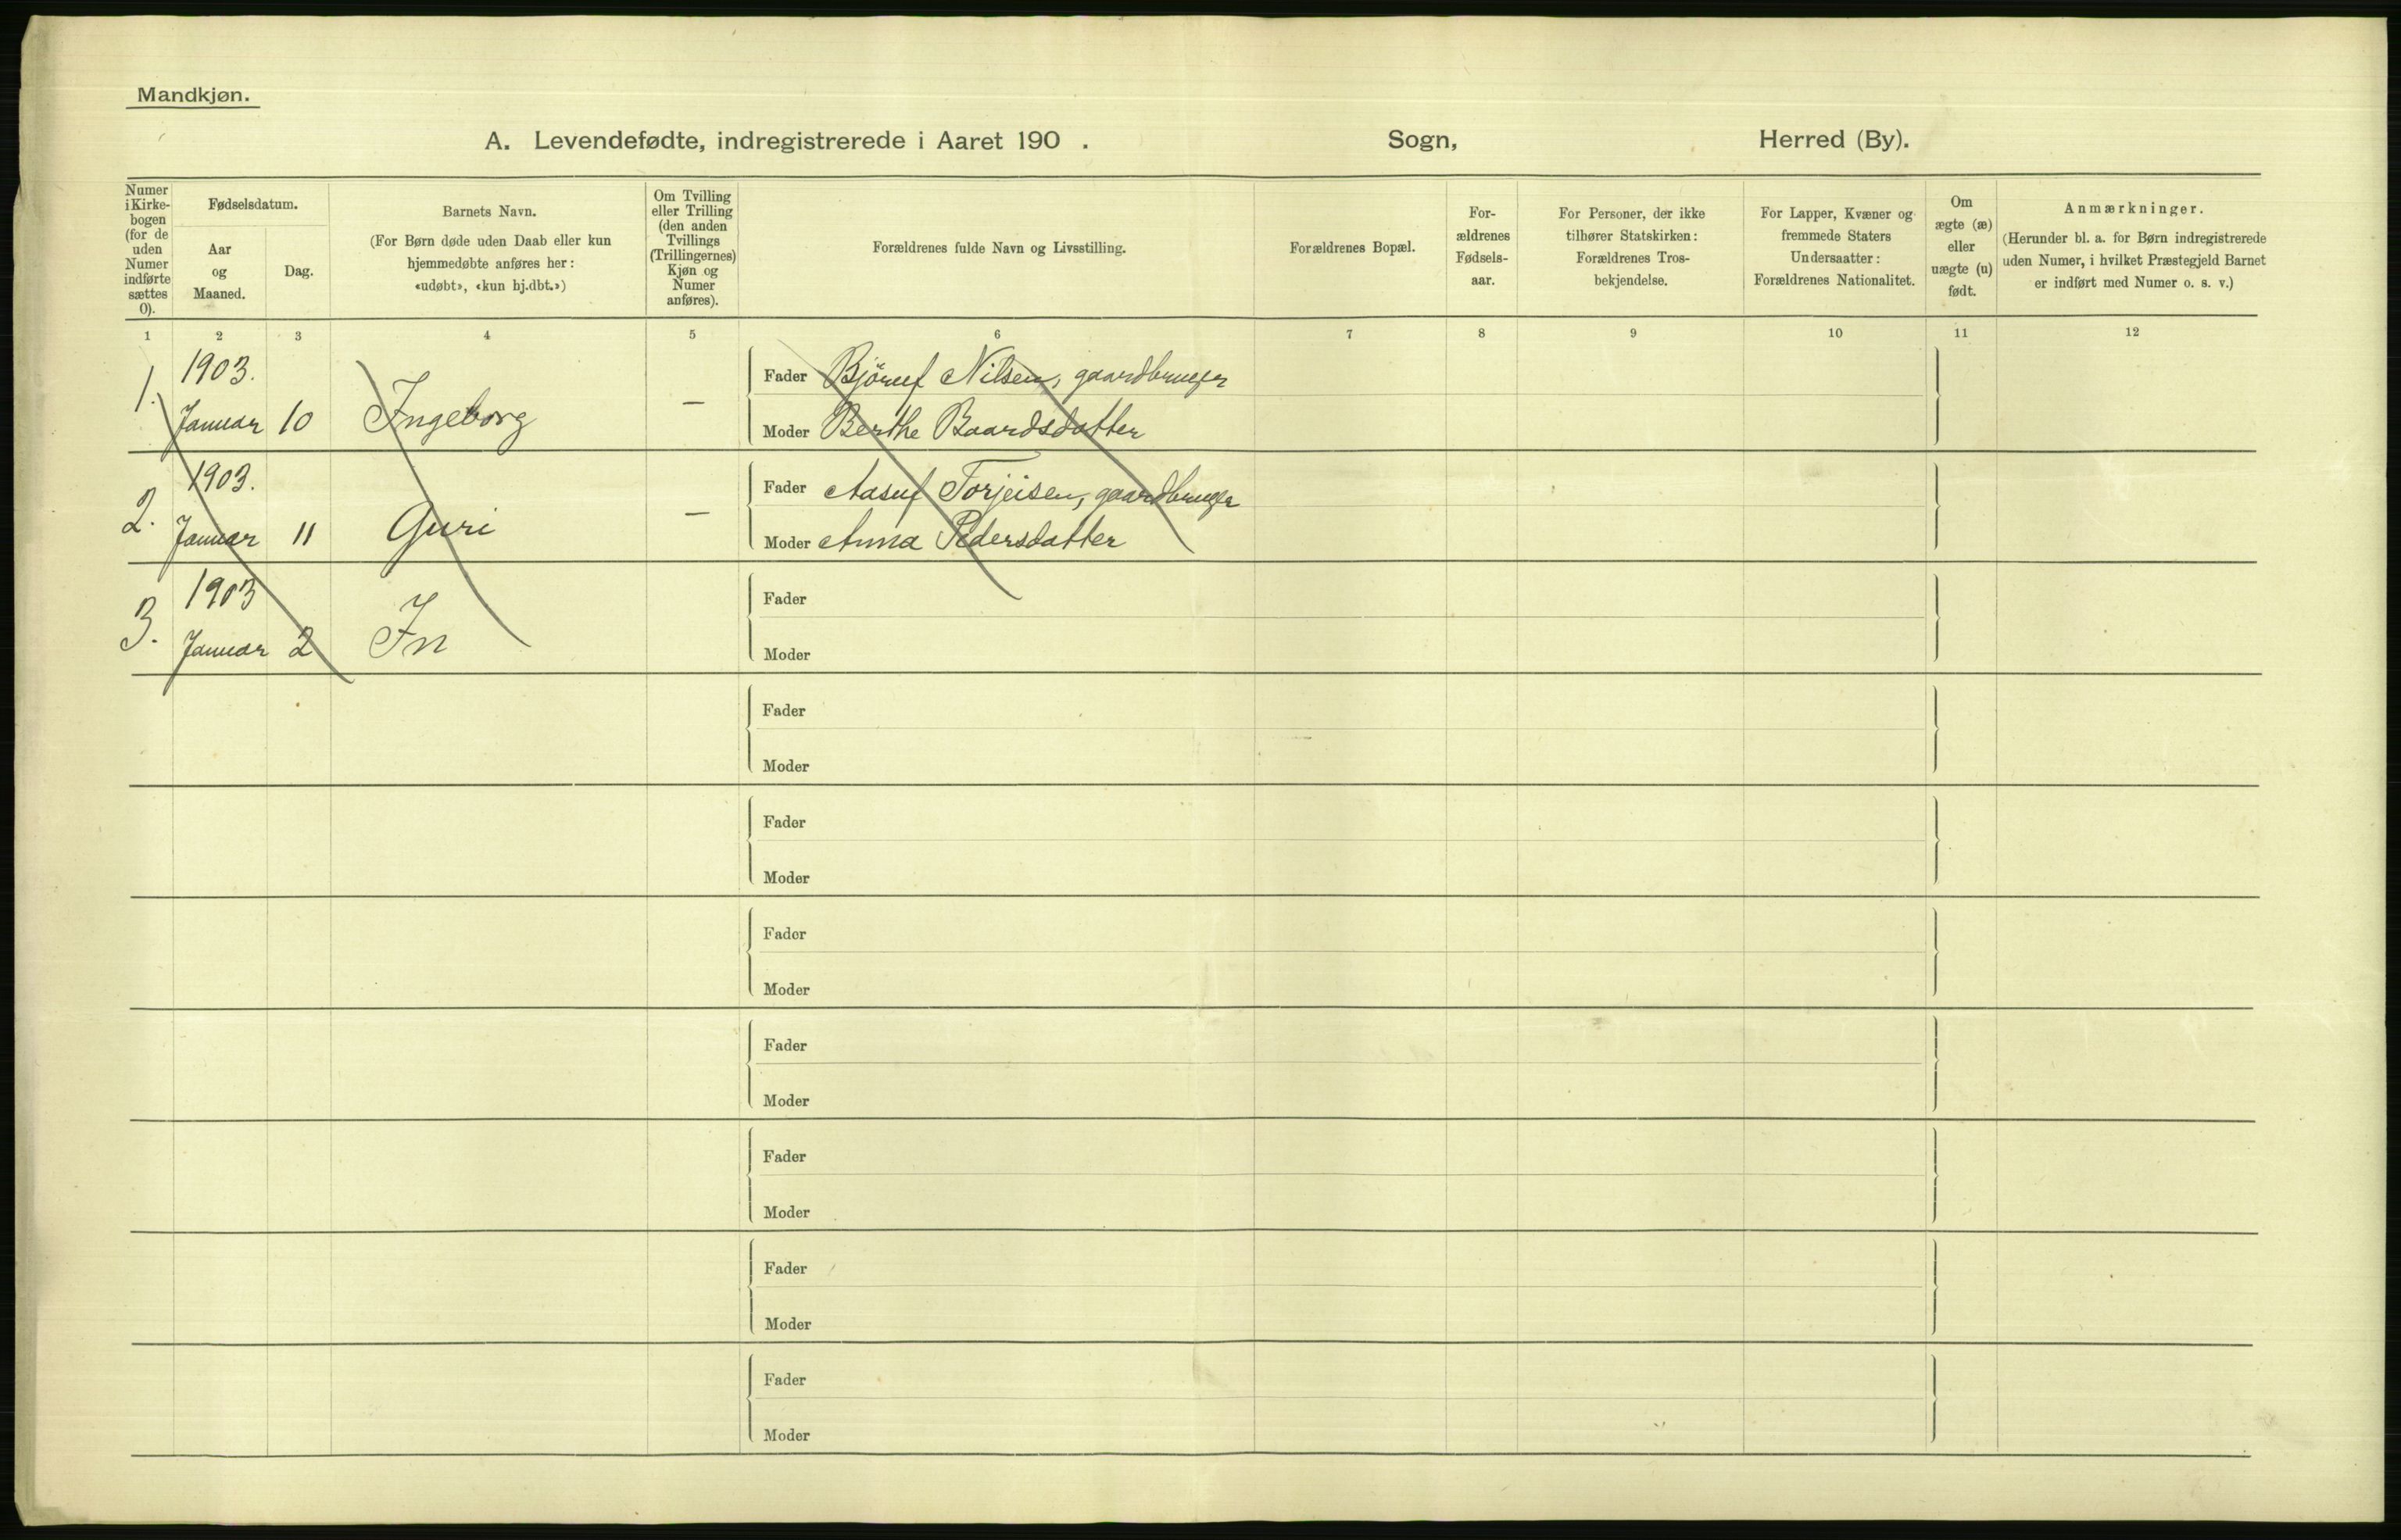 Mandkjøn.
A. Levendefødte, indregistrerede i Aaret 190 . Sogn, Herred (By).
Numer i Kirke-bogen (for de uden Numer indførte sættes 0).
Fødselsdatum.
Aar og Maaned.
Dag.
Barnets Navn.
(For Børn døde uden Daab eller kun
hjemmedøbte anføres her:
«udøbt», «kun hj.dbt.»)
Om Tvilling
eller Trilling
(den anden
Tvillings
(Trillingernes)
Kjøn og
Numer
anføres).
Forældrenes fulde Navn og Livsstilling.
Forældrenes Bopæl.
For-
ældrenes
Fødsels-
aar.
For Personer, der ikke
tilhører Statskirken:
Forældrenes Tros-
bekjendelse.
For Lapper, Kvæner og
fremmede Staters
Undersaatter:
Forældrenes Nationalitet.
Om
ægte (æ)
eller
uægte (u)
født.
Anmærkninger.
(Herunder bl. a. for Børn indregistrerede
uden Numer, i hvilket Præstegjeld Barnet
er indført med Numer o. s. v.)
1 2 3 4 5 6 7 8 9 10 11 12
1. 1903. Januar 10 Ingeborg —
Fader Björnuf Nilsen, gaardbruger
Moder Berthe Baardsdatter
2. 1903. Januar 11 Guri —
Fader Aasuf Torjeisen, gaardbruger
Moder Anna Pedersdatter
3. 1903 Januar 2 In
Fader
Moder
Fader
Moder
Fader
Moder
Fader
Moder
Fader
Moder
Fader
Moder
Fader
Moder
Fader
Moder